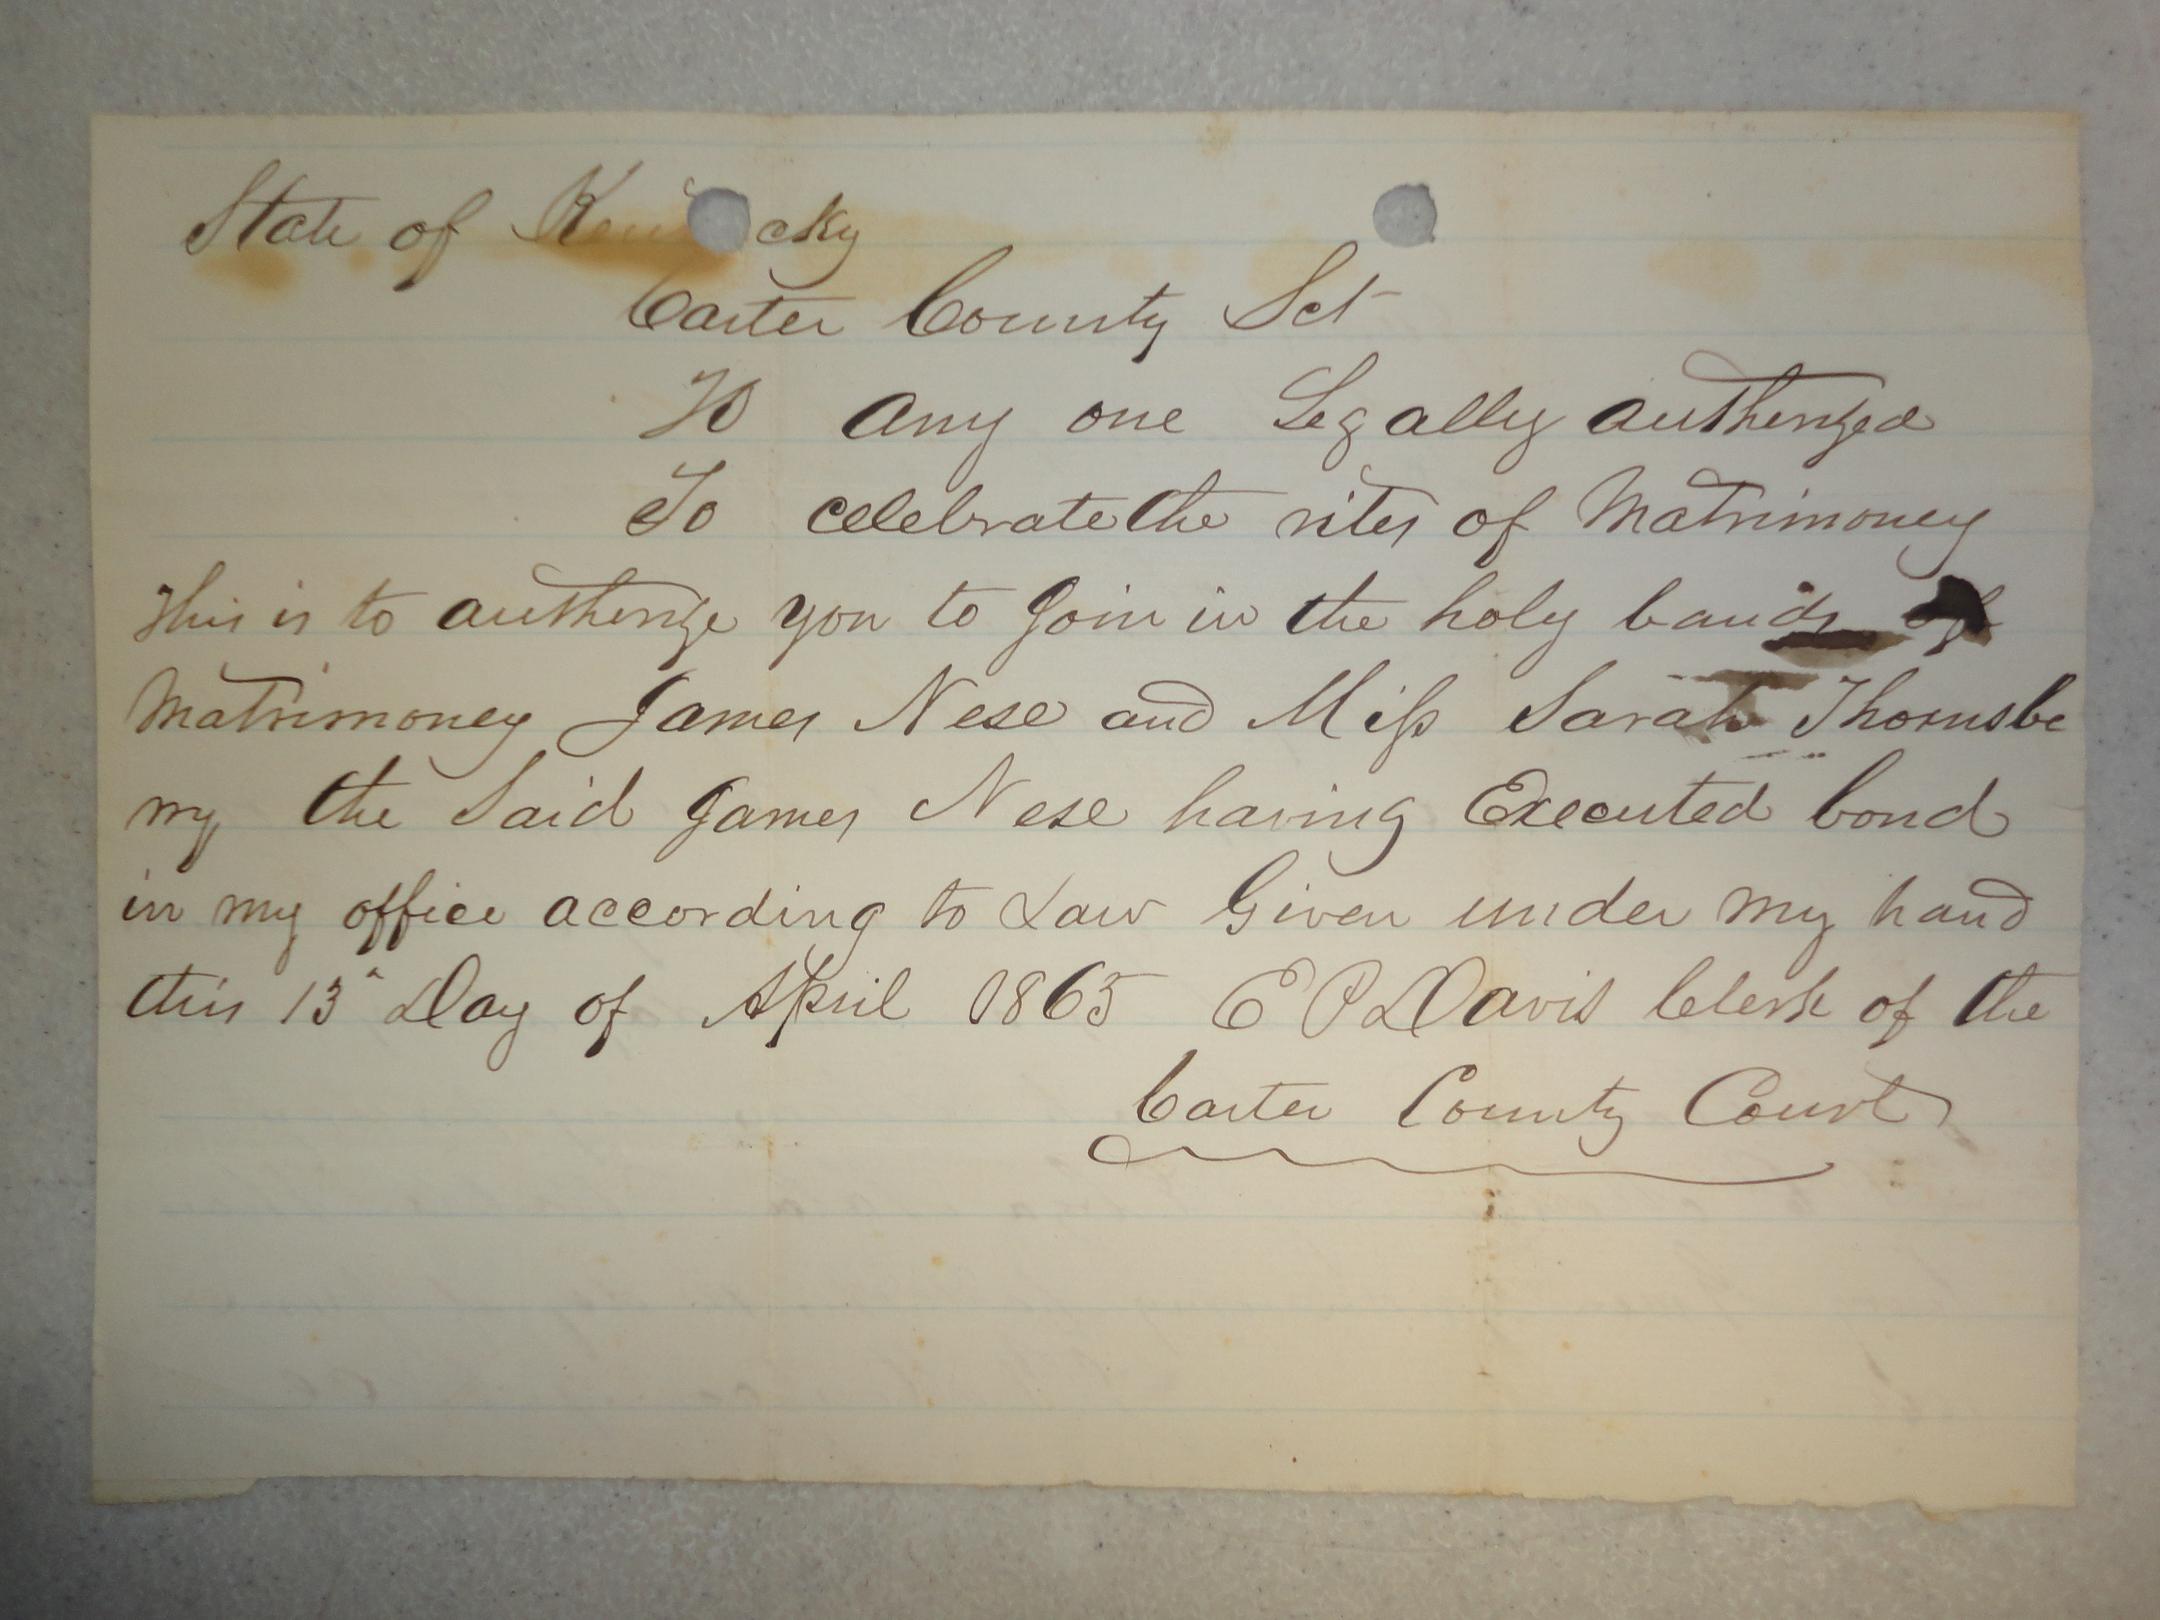 State of Kentucky
Carter County Sct
To any one Legally autherized
To celebrate the rites of Matrimoney
This is to autherize you to Join in the holy bands of
Matrimoney James Nese and Miss Sarah Thornsbe
rry the Said James Nese having Executed bond
in my office according to Law Given under my hand
this 13" Day of April 1865 E P Davis Clerk of the
Carter County Court